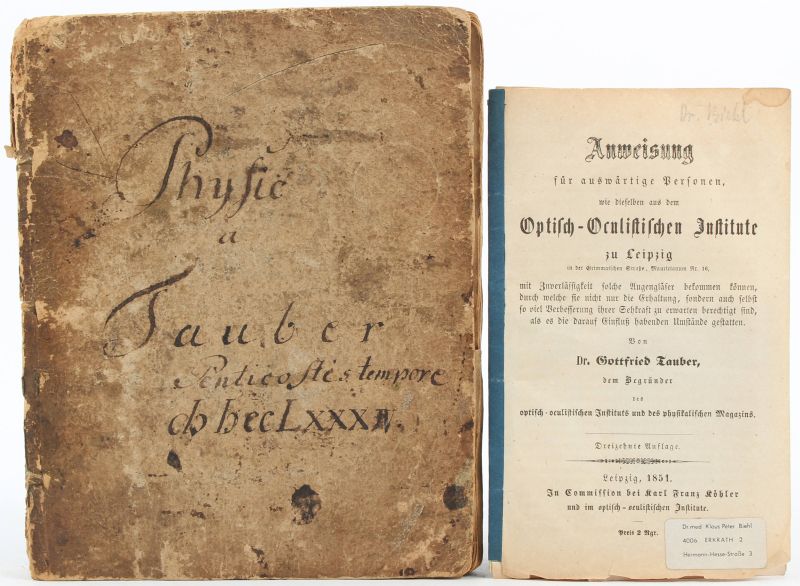 Physic
a
Tauber
Penticostes tempore
Dr. Biehl
Anweisung
für auswärtige Personen,
wie dieselben aus dem
Optiſch-Oculiſtiſchen Inſtitute
zu Leipzig
in der Grimmaiſchen Straße, Mauricianum Nr. 16,
mit Zuverläſſigkeit ſolche Augengläſer bekommen können,
durch welche ſie nicht nur die Erhaltung, ſondern auch ſelbſt
ſo viel Verbeſſerung ihrer Sehkraft zu erwarten berechtigt ſind,
als es die darauf Einfluß habenden Umſtände geſtatten.
Von
Dr. Gottfried Tauber,
dem Begründer
des
optiſch-oculiſtiſchen Inſtituts und des phyſikaliſchen Magazins.
Dreizehnte Auflage.
Leipzig, 1851.
In Commiſſion bei Karl Franz Köhler
und im optiſch-oculiſtiſchen Inſtitute.
Preis 2 Ngr.
Dr. med. Klaus Peter Biehl
4006 ERKRATH 2
Hermann-Hesse-Straße 3